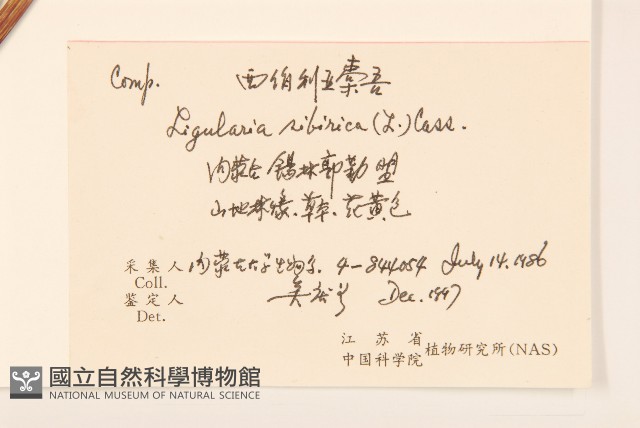 Comp. 西伯利亚橐吾
Ligularia sibirica (L.) Cass.
内蒙古 锡林郭勒盟
山地林缘、草本、花黄色
采集人 内蒙古大学生物系. 4-844054 July 14. 1986
Coll.
鉴定人 Dec. 1997
Det.
江苏省
中国科学院 植物研究所(NAS)
國立自然科學博物館
NATIONAL MUSEUM OF NATURAL SCIENCE